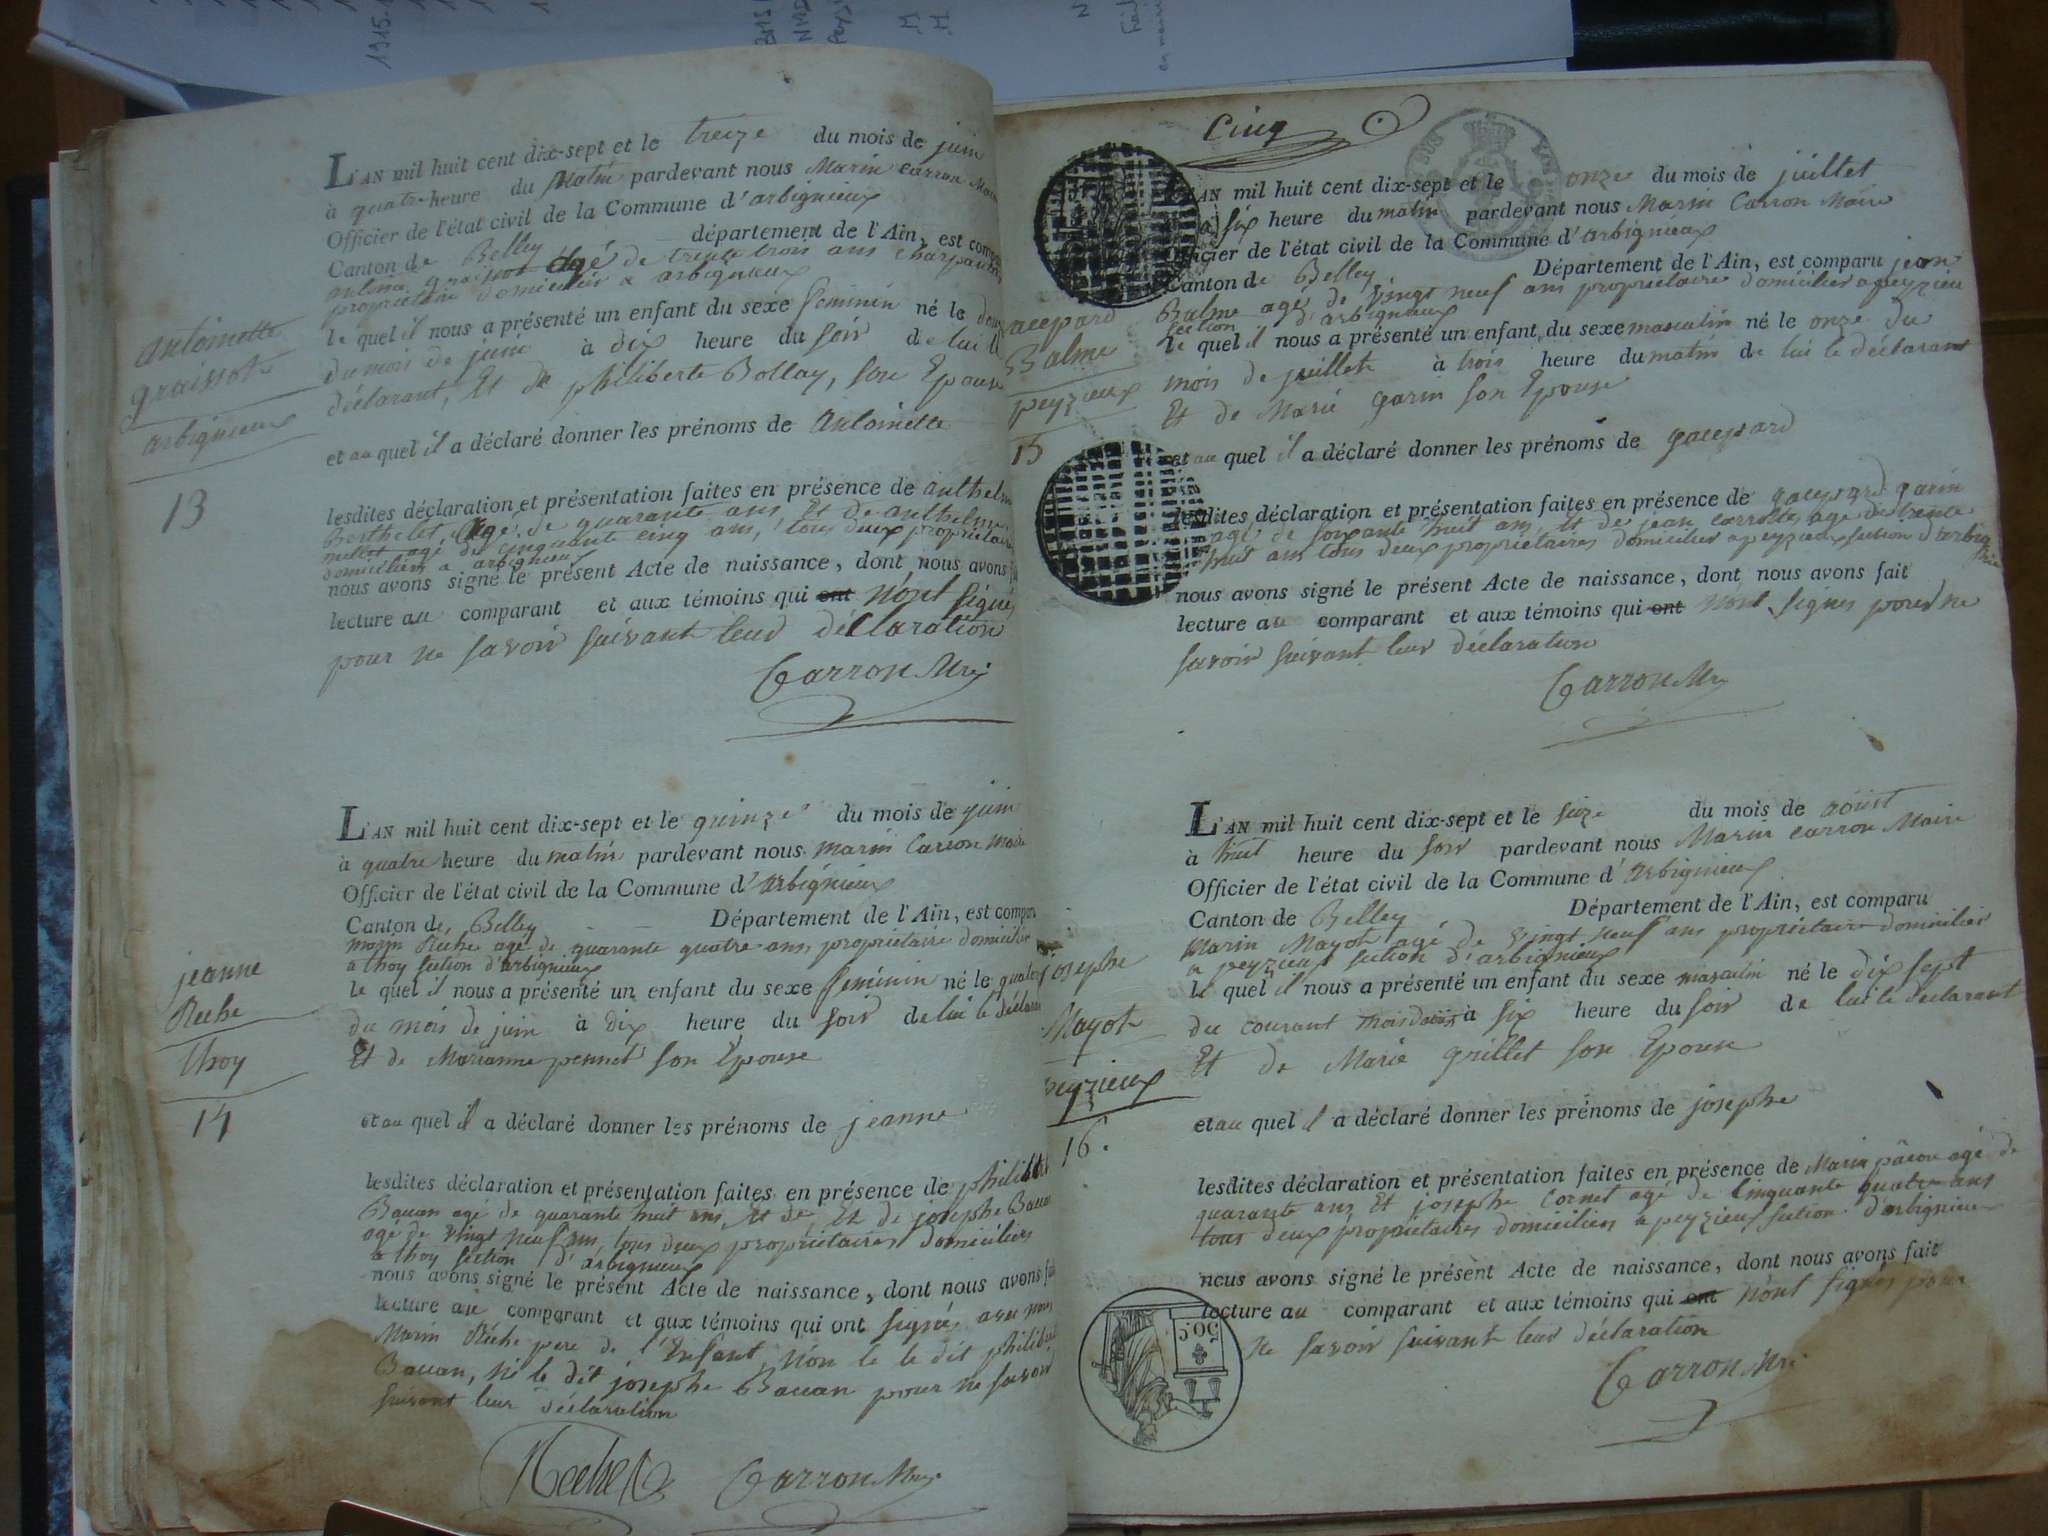 1915.
Antoinette
graissot
arbignieux
13
L'AN mil huit cent dix-sept et le treize du mois de juin
à quatre heure du Matin pardevant nous Marin Carron Maire
Officier de l'état civil de la Commune d'arbignieux
Canton de Belley département de l'Ain, est comparu
antoine graissot âgé de trente trois ans charpentier
propriétaire domicilié a arbignieux
le quel il nous a présenté un enfant du sexe feminin né le
du mois de juin à dix heure du soir de lui le
déclarant, Et de philiberte Bollay, son Epouse
et au quel il a déclaré donner les prénoms de Antoinette
lesdites déclaration et présentation faites en présence de anthelme
Berthelet, Agé de quarante ans Et de anthelme
millet agé de cinquante cinq ans, tous deux propriétaires
domiciliers a arbignieux
nous avons signé le présent Acte de naissance, dont nous avons
lecture au comparant et aux témoins qui ont n'ont signés
pour ne savoir suivant leur déclaration
Carron Mre
jeanne
Reche
thoy
14
L'AN mil huit cent dix-sept et le quinze du mois de juin
à quatre heure du matin pardevant nous marin Carron maire
Officier de l'état civil de la Commune d'Arbignieux
Canton de Belley Département de l'Ain, est comparu
marin Reche agé de quarante quatre ans, propriétaire domicilié
a thoy section d'arbignieux
le quel il nous a présenté un enfant du sexe feminin né le quatorze
du mois de juin à dix heure du soir de lui le déclarant
Et de Marianne pennet son Epouse
et au quel il a déclaré donner les prénoms de jeanne
lesdites déclaration et présentation faites en présence de philibert
Bauan agé de quarante huit ans, Et de, Et de josephe Bauan
agé de vingt neuf ans, tous deux propriétaires domiciliers
a thoy section d'arbignieux
nous avons signé le présent Acte de naissance, dont nous avons fait
lecture au comparant et aux témoins qui ont signés avec nous
Marin Réche pere de l'Enfant, Non le le dit philibert
Bauan, ni le dit josephe Bauan pour ne savoir
suivant leur déclaration
Reche Carron Mre
Cinq
gaspard
Balme
peyzieux
15
L'AN mil huit cent dix-sept et le onze du mois de juillet
à six heure du matin pardevant nous Marin Carron Maire
Officier de l'état civil de la Commune d'arbignieux
Canton de Belley Département de l'Ain, est comparu jean
Balme agé de vingt neuf ans propriétaire domicilier a peyzieu
section d'arbignieux
le quel il nous a présenté un enfant du sexe masculin né le onze du
mois de juillet à trois heure du matin de lui le déclarant
Et de Marie garin son Epouse
et au quel il a déclaré donner les prénoms de gaspard
lesdites déclaration et présentation faites en présence de gaspard garin
agé de soixante huit ans, Et de jean carrotte, agé de trente
huit ans tous deux propriétaires domiciliers a peyzieux section d'arbig
nous avons signé le présent Acte de naissance, dont nous avons fait
lecture au comparant et aux témoins qui ont n'ont signés pour ne
savoir suivant leur déclaration
Carron Mre
josephe
Mayot
peyzieux
16.
L'AN mil huit cent dix-sept et le seize du mois de aoust
à huit heure du soir pardevant nous Marin carron Maire
Officier de l'état civil de la Commune d'Arbignieux
Canton de Belley Département de l'Ain, est comparu
Marin Mayot agé de vingt neuf ans propriétaire domicilier
a peyzieux section d'arbignieux
le quel il nous a présenté un enfant du sexe masculin né le dix sept
du courant à six heure du soir de lui le déclarant
Et de Marie grillet son Epouse
et au quel il a déclaré donner les prénoms de josephe
lesdites déclaration et présentation faites en présence de Marin pâcou agé de
quarante ans Et josephe Cornet agé de Cinquante quatre ans
tous deux propriétaires domiciliers a peyzieux section d'arbignieux
nous avons signé le présent Acte de naissance, dont nous avons fait
lecture au comparant et aux témoins qui ont n'ont signés pour
ne savoir suivant leur déclaration
Carron Mre
50 C